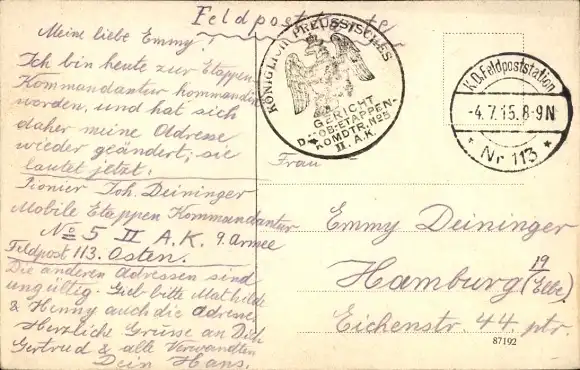 Feldpostkarte
Meine liebe Emmy!
Ich bin heute zur Etappen
Kommandantur kommandiert
worden, und hat sich
daher meine Adresse
wieder geändert; sie
lautet jetzt.
Pionier Joh. Deininger
Mobile Etappen Kommandantur
No 5 II A.K. 9. Armee
Feldpost 113. Osten.
Die anderen Adressen sind
ungültig. Gieb bitte Mathilde
& Henny auch die Adresse.
Herzliche Grüsse an Dich
Gertrud & alle Verwandten
Dein Hans.
KÖNIGLICH PREUSSISCHES
GERICHT
MOB-ETAPPEN-
KOMDTR. No 5
II. A.K.
K.D. Feldpoststation
-4.7.15. 8-9N
* Nr 113 *
Frau
Emmy Deininger
Hamburg 19 (Elbe)
Eichenstr. 44. ptr.
87192